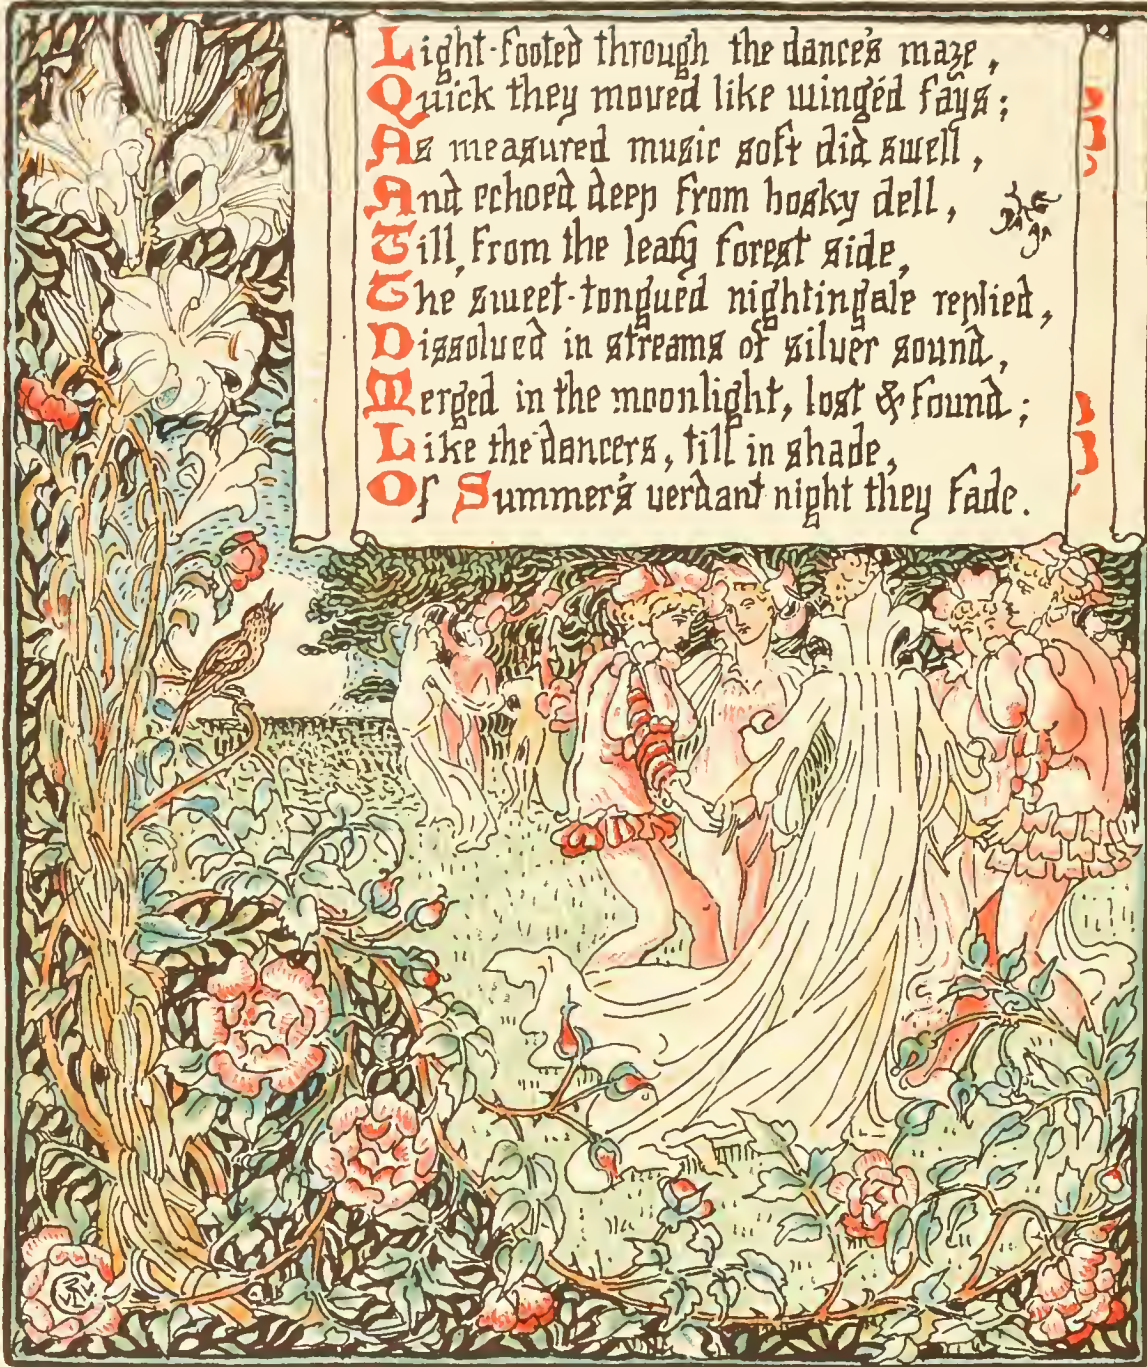 Light-footed through the dance's maze,
Quick they moved like wingéd fays;
As measured music soft did swell,
And echoed deep from bosky dell,
Till, from the leafy forest side,
The sweet-tongued nightingale replied,
Dissolved in streams of silver sound,
Merged in the moonlight, lost & found;
Like the dancers, till in shade,
Of Summer's verdant night they fade.